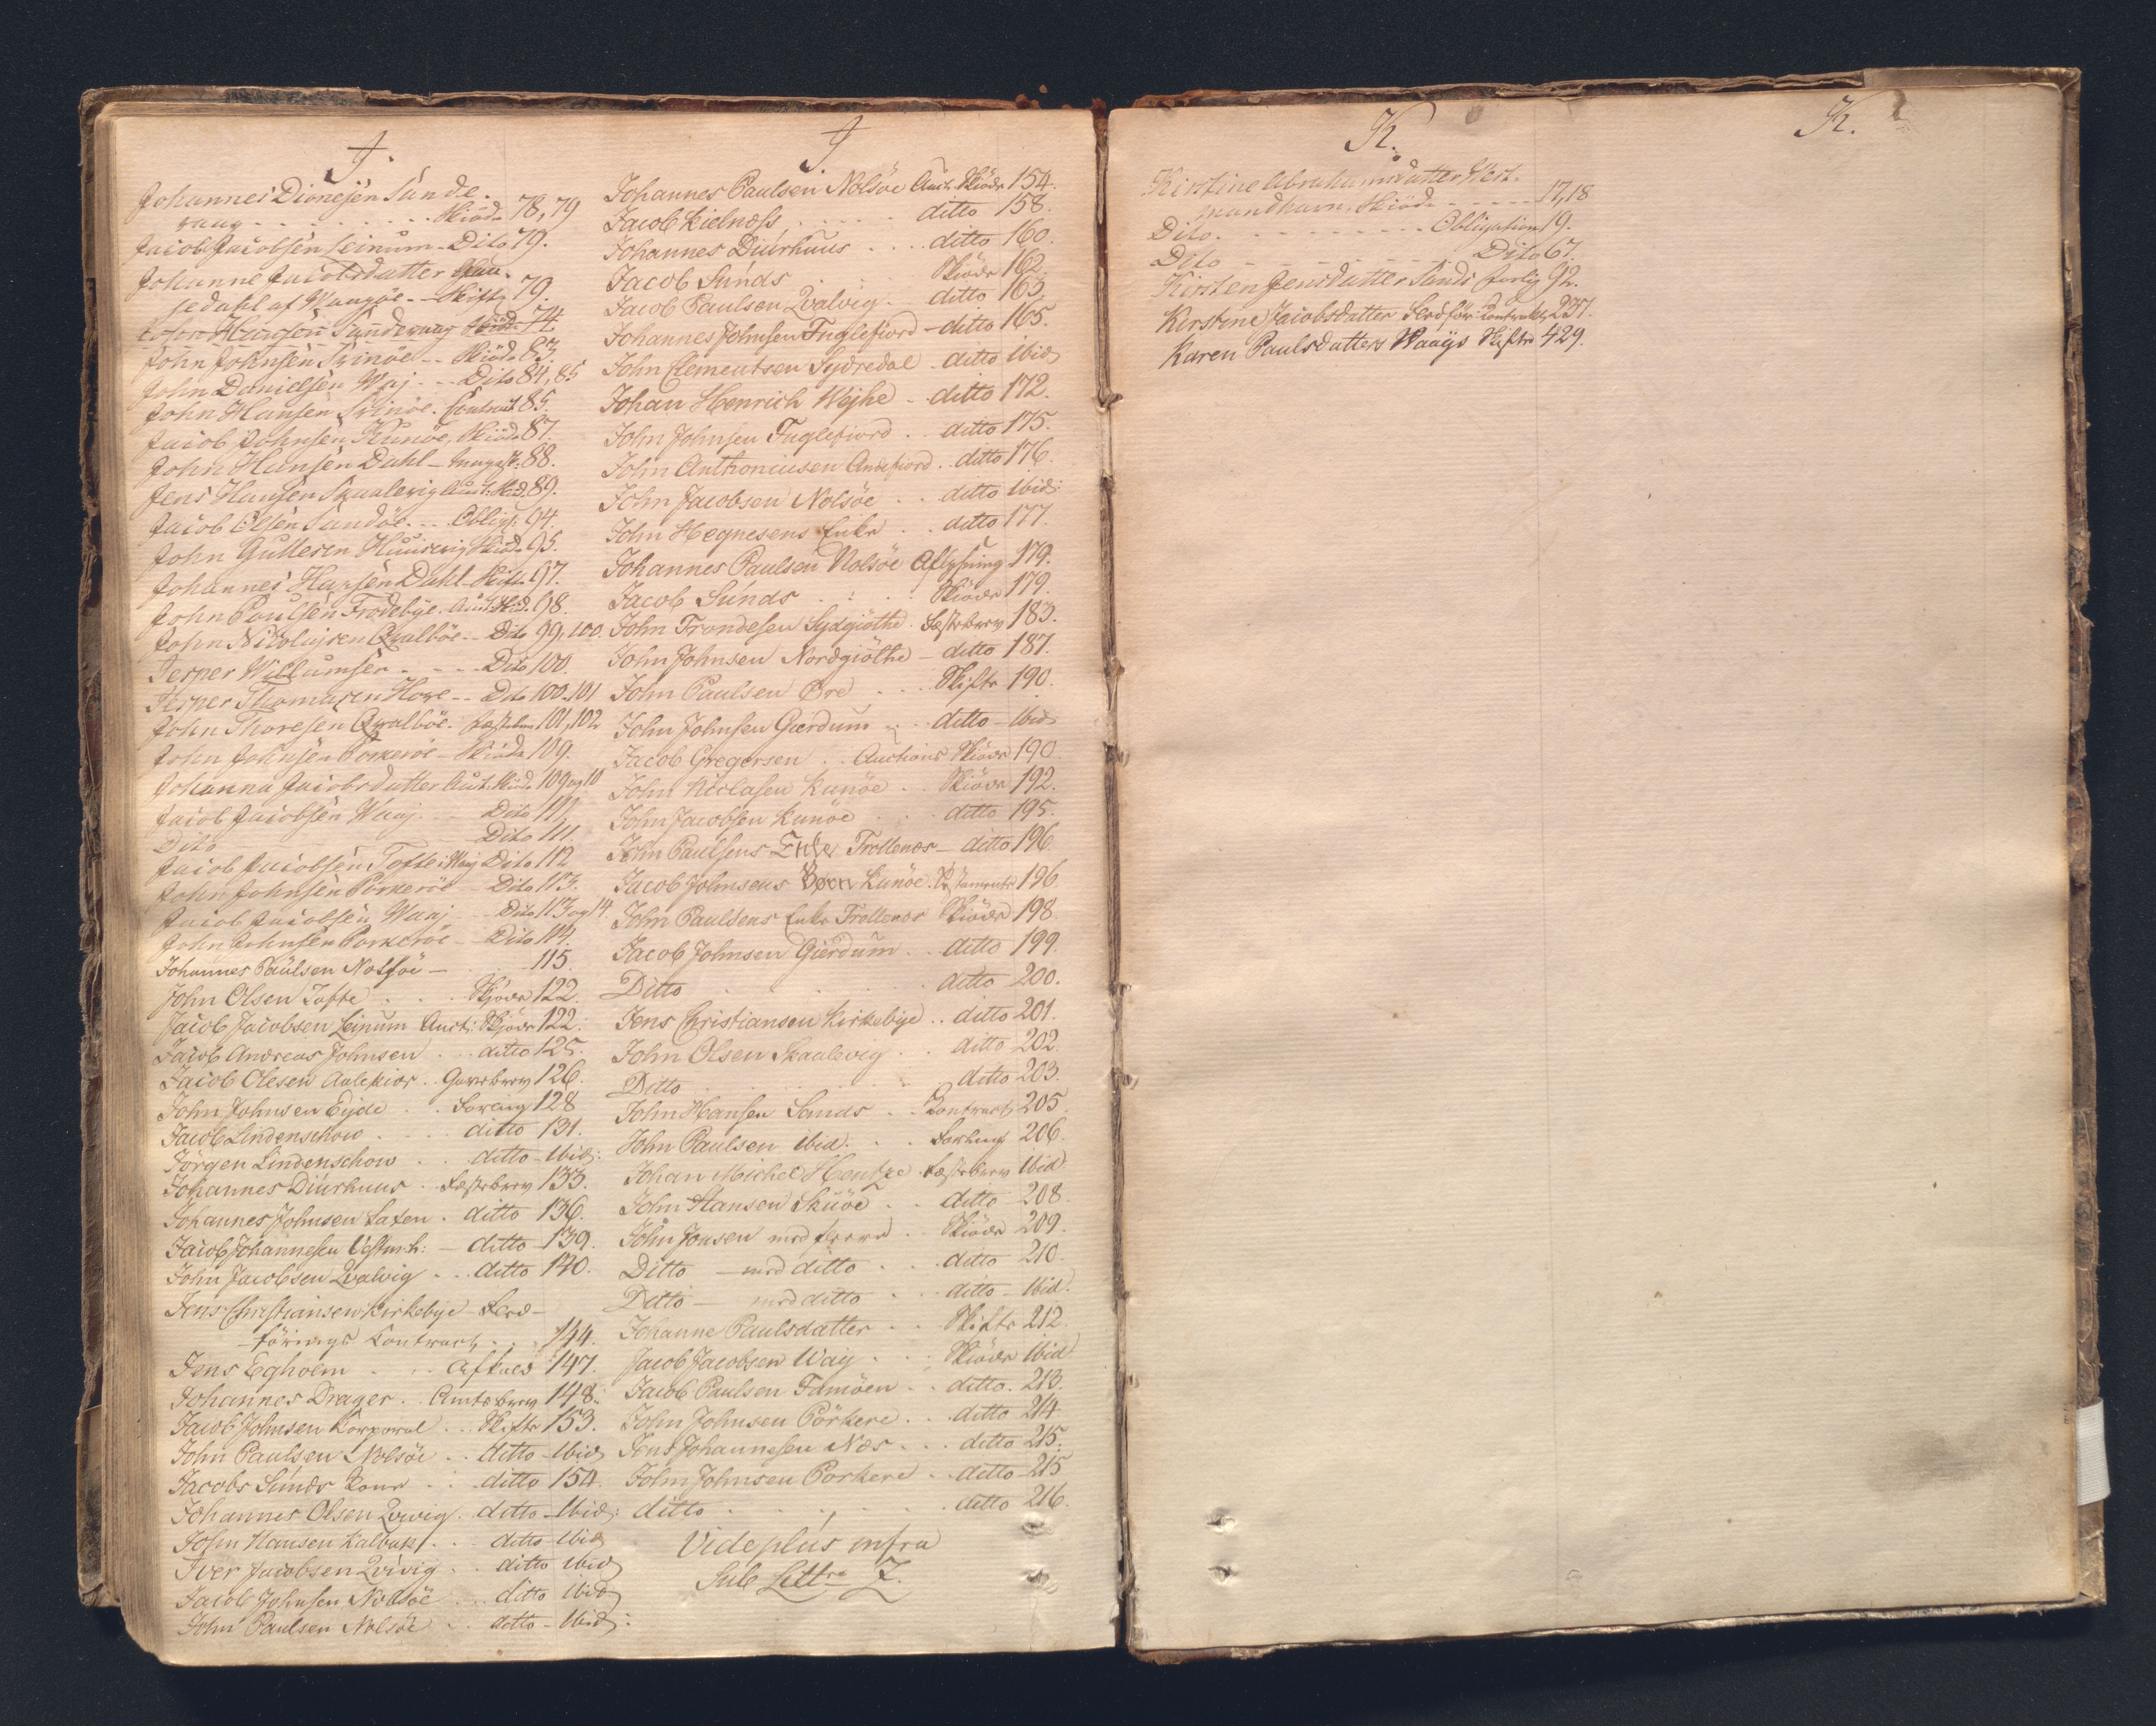 J.
Johannes Dionejsen Sunde-
vaag - - - - - Skiöde 78, 79
Jacob Jacobsen Leinum - Dito 79.
Johanne Jacobsdatter
sedahl af Waagöe - - Skifte 79.
Hansen Sundevaag Skiöde 74
John Johnsen Svinöe - - Skiöde 83.
John Danielsen Waj - - Dito 84, 85
John Hansen Svinöe. Contract 85.
Jacob Johnsen Kunöe, Skiöde 87.
John Hansen Dahl - 88.
Jens Hansen Skualevig Auct. Skiöd. 89.
Jacob Olsen Sandöe. - - Oblig. 94.
John Gullesen Huusevig Skiöde 95.
Johannes Hansen Dahl - Skifte 97.
John Poulsen Frodebÿe. Auct. Skiöd. 98.
John Nicolajsen Qvalböe - - Dito 99, 100.
Jesper Willumsen - - - Dito 100.
Jesper Thomasen Hove - - Dito 100. 101
John Thoresen Qvalböe. Fæstebrev 101, 102
John Johnsen Porkeröe - Skiöde 109.
Johanna Jacobsdatter Auct. Skiöd. 109 og 10
Jacob Jacobsen Waaj. - - Dito 111
Dito - - - Dito 111.
Jacob Jacobsen Tofte i Waaj Dito 112
John Johnsen Porkeröe - Dito 113.
Jacob Jacobsen Waaj - - Dito 113 og 14.
John Johnsen Porkeröe - Dito 114.
Johannes Paulsen Nolsöe - 115.
John Olsen Tofte . . . Skjöde 122.
Jacob Jacobsen Leinum Auct: Skjöde 122.
Jacob Andreas Johnsen . . ditto 125.
Jacob Olesen . . Gavebrev 126.
John Johnsen Eyde . . Forlig 128
Jacob Lindenschow . . . ditto 131.
Jörgen Lindenschow . . ditto - Ibid:
Johannes Diurhuus . Fæstebrev 133.
Johannes Johnsen Saxen . ditto 136.
Jacob Johannesen Vestmh: - ditto 139.
John Jacobsen Qvalvig . . . ditto 140.
Jens Christiansen Kirkebye Fled-
förings Contract . . 144.
Jens Egholm . . . Afkald 147.
Johannes Drager . Amtsbrev 148.
Jacob Johnsen Korporal . . Skifte 153.
John Paulsen Nolsöe . . ditto - Ibid
Jacobs Sunds Kone . . ditto 154.
Johannes Olsen Qvivig . ditto - Ibid:
John Hansen Kalbak . . . ditto - Ibid
Iver Jacobsen Qvivig . . ditto Ibid
Jacob Johnsen Nolsöe . . ditto Ibid
John Paulsen Nolsöe . . ditto - Ibid:
J.
Johannes Paulsen Nolsöe Auct. Skiöde 154.
Jacob Kielnæss . . . . . ditto 158.
Johannes Diurhuus . . . ditto 160.
Jacob Sunds . . Skiöde 162.
Jacob Paulsen Qvalvig . ditto 163.
Johannes Johnsen Fuglefiord - ditto 165.
John Clementsen Sydredal . ditto ibid
Johan Henrich Wejhe - ditto 172.
John Johnsen Fuglefiord . . ditto 175.
John Anthoniusen Andefiord . ditto 176.
John Jacobsen Nolsöe . . ditto ibid:
John Hegnesens Enke . . ditto 177.
Johannes Paulsen Nolsöe Aflysning 179.
Jacob Sunds . . . . Skiöde 179.
John Trondesen Sydgiöthe . Fæstebrev 183.
John Johnsen Nordgiöthe - ditto 187.
John Paulsen Öre . . . Skifte 190.
John Johnsen Gærdum . . ditto - Ibid
Jacob Gregersen . . Auctions Skiöde 190
John Niclasen Kunöe . . Skiöde 192.
John Jacobsen Kunöe . . ditto 195.
John Paulsens Enke Trollenæs - ditto 196
Jacob Johnsens Börn Kunöe. Testamente 196
John Paulsens Enke Trollenæs Skiöde 198
Jacob Johnsen Gierdum . . ditto 199.
Ditto . . . . . ditto 200.
Jens Christiansen Kirkebye . . ditto 201.
John Olsen Skaalevig . . ditto 202.
Ditto . . . . . ditto 203.
John Hansen Sands . . Contract 205.
John Paulsen ibid. . . Forling 206.
Johan Michel Hentze . Fæstebrev Ibid
John Hansen Skuöe . . ditto 208.
John Jonsen med fleere . . Skiöde 209.
Ditto - med ditto . . ditto 210.
Ditto - med ditto . . ditto - Ibid.
Johanne Paulsdatter . . Skifte 212.
Jacob Jacobsen Waij . . . Skiöde Ibid
Jacob Paulsen Famöen . . ditto. 213.
John Johnsen Pörkere . . ditto 214
Jens Johannesen Næs . . . ditto 215.
John Johnsen Porkere . . ditto 215
ditto . . . . . ditto 216.
Vide plus infra
Sub Littr Z.
K.
Kirstine Abrahamsdatter Vest-
mandhavn. Skiöde - - - - 17, 18
Dito. - - - - - - Obligation 19.
Dito - - - - - - Dito 67.
Kirsten Jensdatter Sands Forlig 92.
Kirstine Jacobsdatter Fledför: Contract 237.
Karen Paulsdatters Waags Skifte 429.
K.